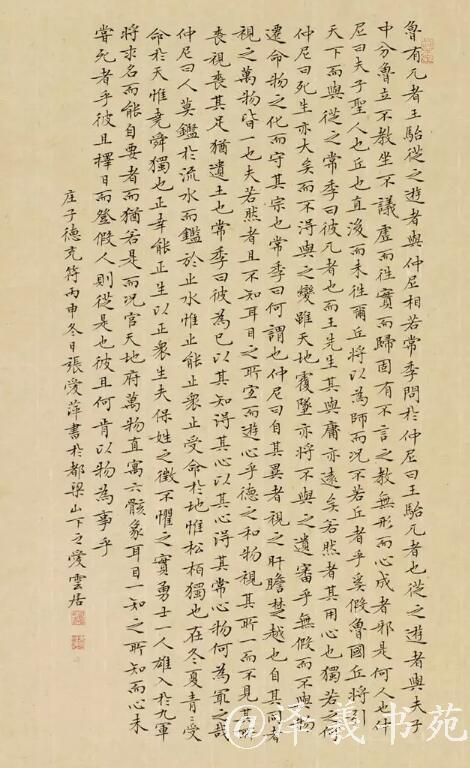 魯有兀者王駘從之遊者與仲尼相若常季問於仲尼曰王駘兀者也從之遊者與夫子
中分魯立不教坐不議虛而往實而歸固有不言之教無形而心成者邪是何人也仲
尼曰夫子聖人也丘也直後而未往爾丘將以為師而況不若丘者乎奚假魯國丘將引
天下而與從之常季曰彼兀者也而王先生其與庸亦遠矣若然者其用心也獨若之何
仲尼曰死生亦大矣而不得與之變雖天地覆墜亦將不與之遺審乎無假而不與物
遷命物之化而守其宗也常季曰何謂也仲尼曰自其異者視之肝膽楚越也自其同者
視之萬物皆一也夫若然者且不知耳目之所宜而遊心乎德之和物視其所一而不見其所
喪視喪其足猶遺土也常季曰彼為己以其知得其心以其心得其常心物何為冣之哉
仲尼曰人莫鑑於流水而鑑於止水惟止能止眾止受命於地惟松柏獨也在冬夏青青受
命於天惟堯舜獨也正幸能正生以正眾生夫保姓之徵不懼之實勇士一人雄入於九軍
將求名而能自要者而猶若是而況官天地府萬物直寓六骸象耳目一知之所知而心未
嘗死者乎彼且擇日而登假人則從是也彼且何肯以物為事乎
庄子德充符丙申冬日張愛萍書於都梁山下之愛雲居
@泽義书苑